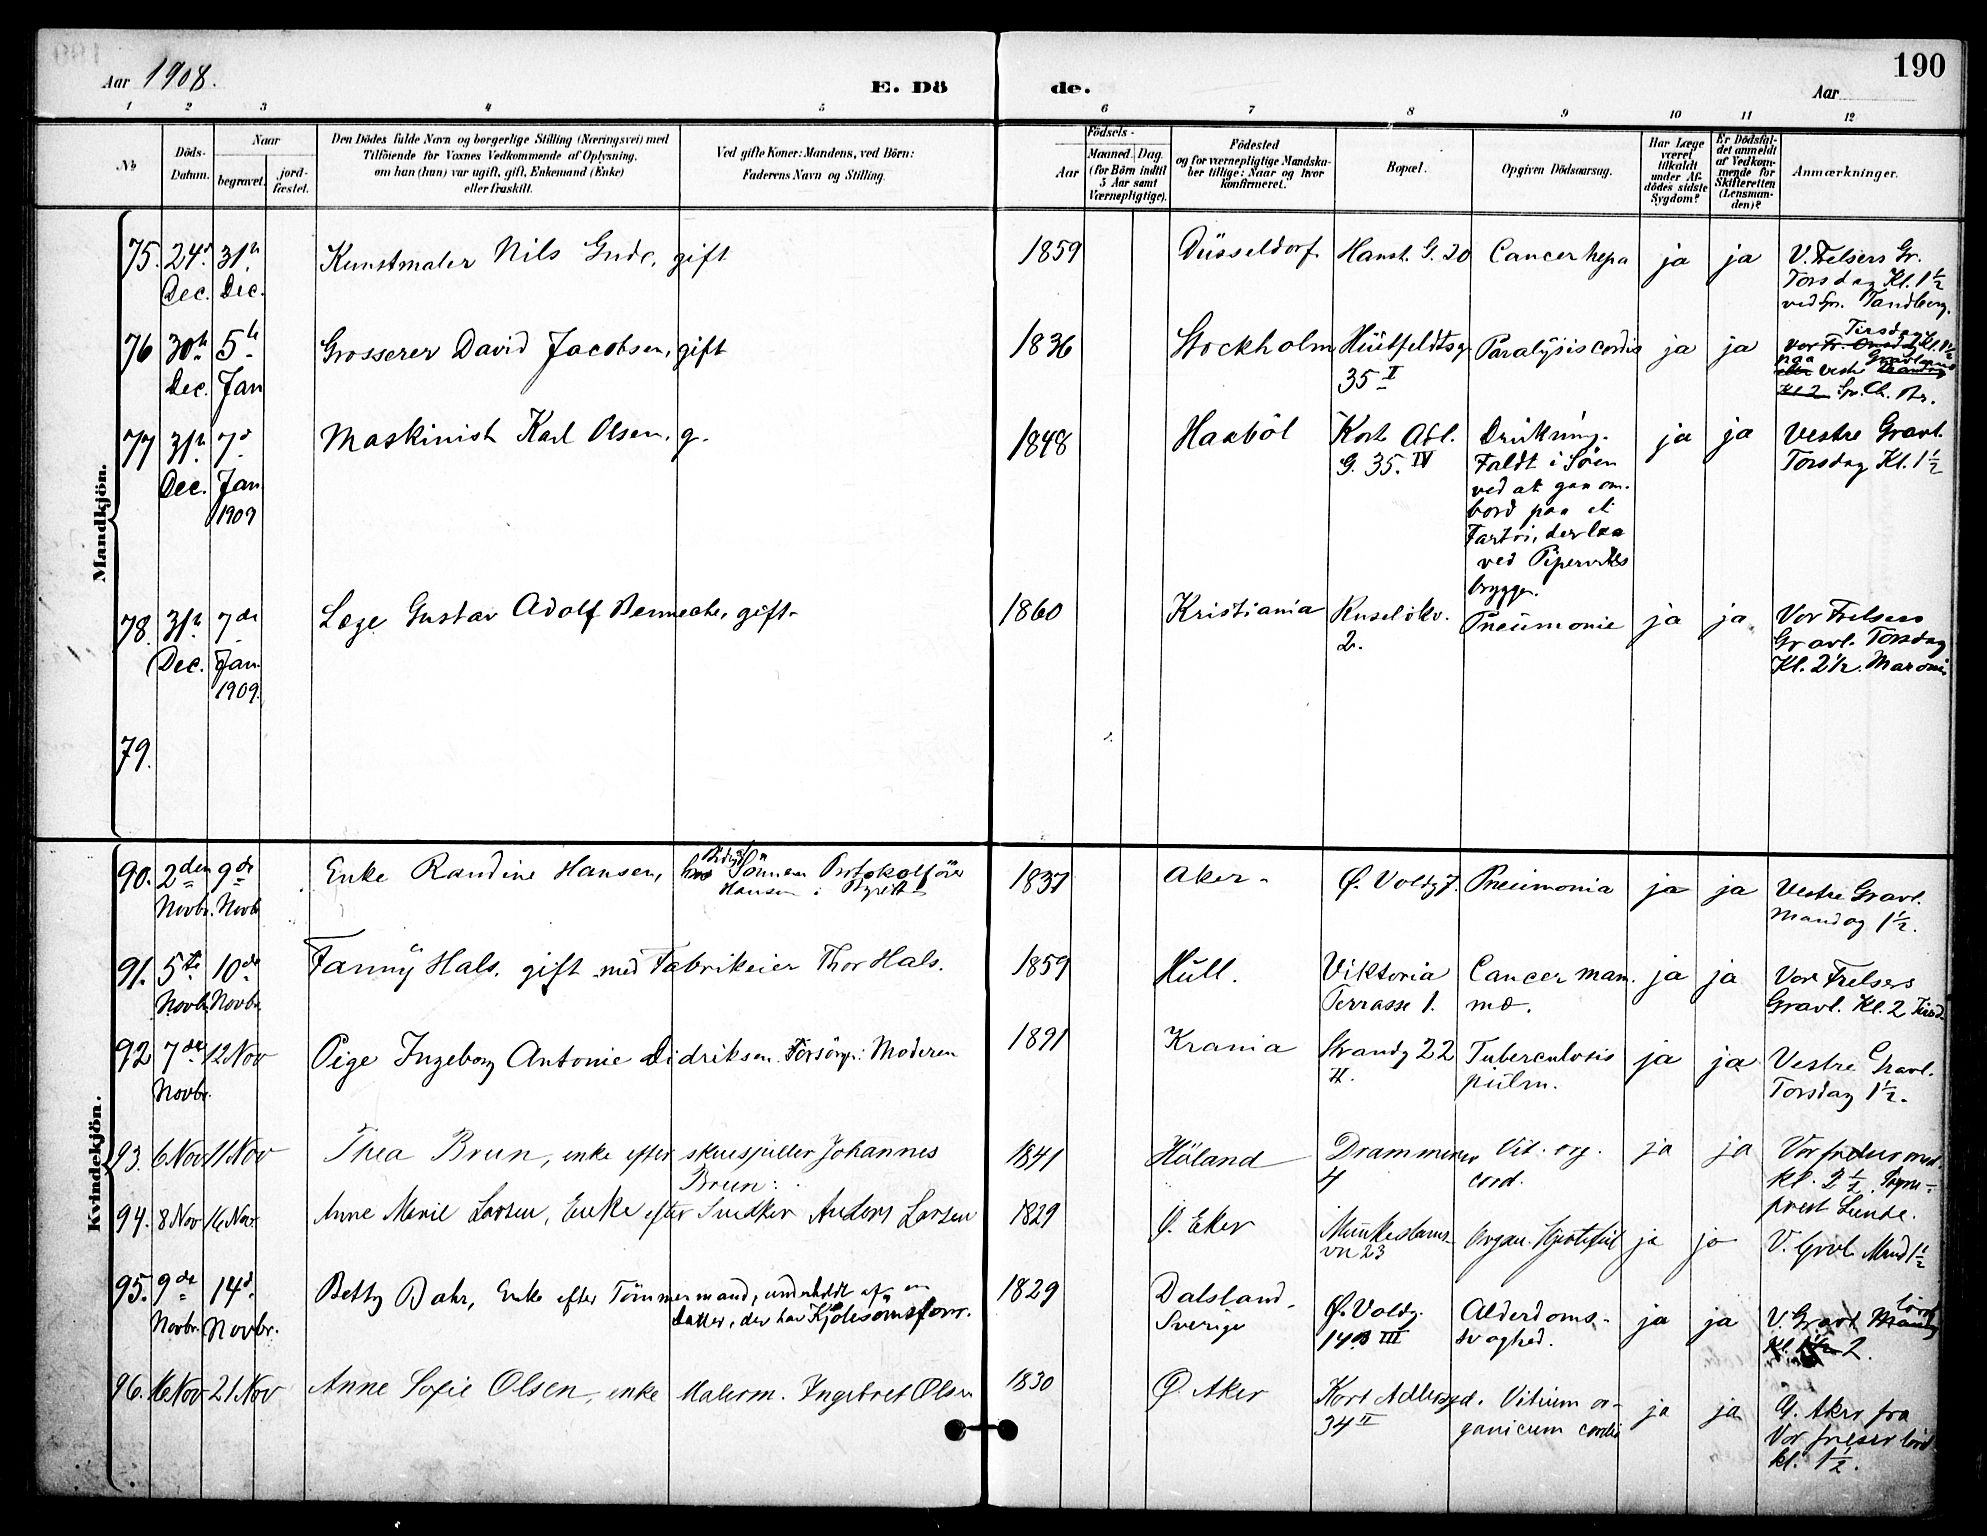 190
Aar 1908.
E. Dö
de.
Aar
1 2 3 4 5 6 7 8 9 10 11 12
No
Döds-Datum.
Naar
begravet.
jord-fæstet.
Den Dödes fulde Navn og borgerlige Stilling (Næringsvei) med
Tilföiende for Voxnes Vedkommende af Oplysning,
om han (hun) var ugift, gift, Enkemand (Enke)
eller fraskilt.
Ved gifte Koner: Mandens, ved Börn:
Faderens Navn og Stilling.
Födsels-
Aar
Maaned. Dag.
(for Börn indtil
5 Aar samt
Værnepligtige).
Födested
og for værnepligtige Mandska-
ber tillige: Naar og hvor
konfirmeret.
Bopæl.
Opgiven Dödsaarsag.
Har Læge
været
tilkaldt
under Af-
dödes sidste
Sygdom?
Er Dödsfal-
det anmeldt
af Vedkom-
mende for
Skifteretten
(Lensman-
den)?
Anmærkninger.
Mandkjön.
75. 24d Dec. 31te Dec. Kunstmaler Nils Gude, gift 1859 Düsseldorf Hanst. G. 20 Cancer hepa ja ja V. Frelsers Gr.
Torsdag Kl. 1½
ved Sp. Tandberg.
76 30te Dec. 5te Jan Grosserer David Jacobsen, gift 1836 Stockholm Hüitfeldtsg 35 II Paralysis cordis ja ja Tirsdag
Vor Fr. Onsdag Kl. 1½
paa Gravland
Vestre
Kl 2 Sp. Ch. Br.
77 31te Dec. 7d Jan 1909 Maskinist Karl Olsen, g. 1848 Haaböl Kort Adl. G. 35. IV Drukning.
Faldt i Söen
ved at gaa om-
bord paa et
Fartöi, der laa
ved Pipervikas
brygge.
ja ja Vestre Gravl.
Torsdag Kl. 1½
78. 31te Dec. 7de Jan. 1909. Læge Gustav Adolf Benneche, gift 1860 Kristiania Ruselökv. 2. Pneumonie ja ja Vor Frelsers
Gravl. Torsdag
Kl. 2½. Maroni
79.
Kvindekjön.
90. 2den Novbr. 9de Novb Enke Randine Hansen, Sönnen Protokolförer
Hansen i
1837 Aker Ø. Voldg 7. Pneumonia ja ja Vestre Gravl.
Mandag 1½.
91. 5te Novb. 10de Novbr. Fanny Hals, gift med Fabrikeier Thor Hals. 1859 Hull. Viktoria
Terrasse 1. Cancer mam-
mæ. ja ja Vor Frelsers
Gravl. Kl. 2 Tirsd
92 7de Novbr. 12 Nov Pige Ingeborg Antonie Didriksen. Forsörger: Moderen 1891 Krania Strandg 22
II. Tuberculosis
pulm. ja ja Vestre Gravl.
Torsdag 1½.
93. 6 Nov 11 Nov Thea Brun, enke efter skuespiller Johannes
Brun. 1841 Höland Drammensv
4 Vit. org.
cord. ja ja Vor frelser onsd.
kl. 2½. Sogne-
prest Lunde.
94. 8 Nov 16 Nov Anne Marie Larsen, Enke efter Snedker Anders Larsen 1829 Ø. Eker Munkedams-
vn 23 Organ. Hjertefeil ja ja V. Gravl Mand 1½
95. 9de Novbr. 14d. Novbr. Betty Dahr, Enke efter Tömmermand, underholdt af en
Datter, der har Kjolesömsforr. 1829 Dalsland,
Sverige Ø. Voldg.
14 III Alderdoms-
svaghed. ja ja V. Gravl Lörd
Kl. 2.
96. 16 Nov 21 Nov Anne Sofie Olsen, enke Malerm. Ingebret Olsen 1830 Ø. Aker Kort Adlersgd.
34 II Vitium or-
ganicum cordis ja ja Ø. Aker fra
Vor frelser lörd
kl. 1½.